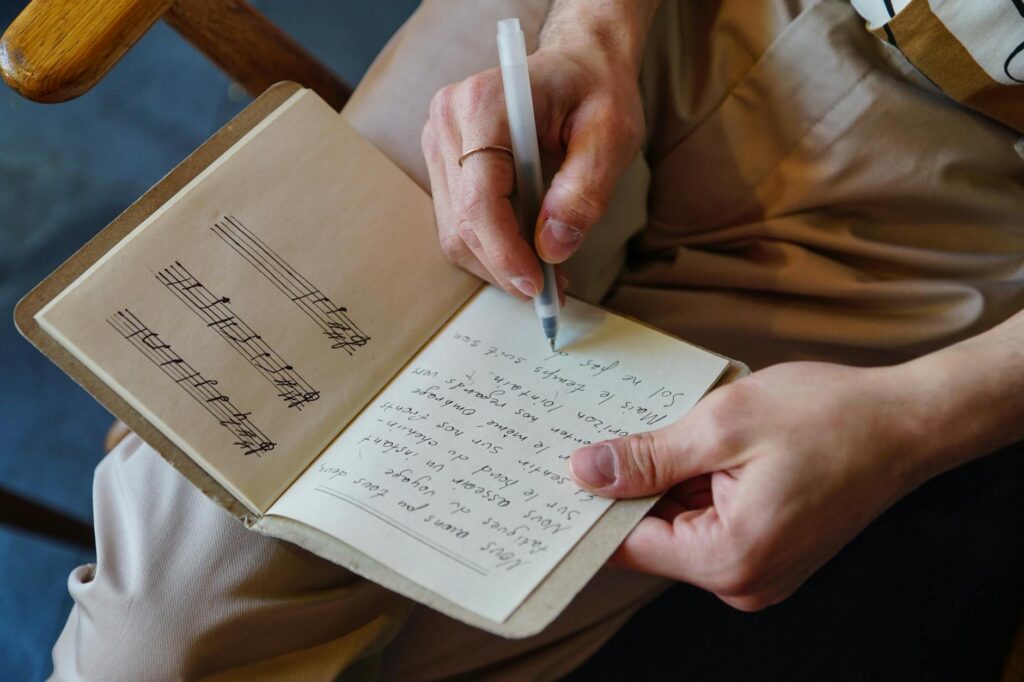 Nous avions pu tous deux
fatigues du voyage
Nous asseoir un instant
Sur le bord du chemin-
sentir sur nos fronts
le même ombrage
nos regards vers
horizon lointain.
Mais le temps suit son
Sol ne pas